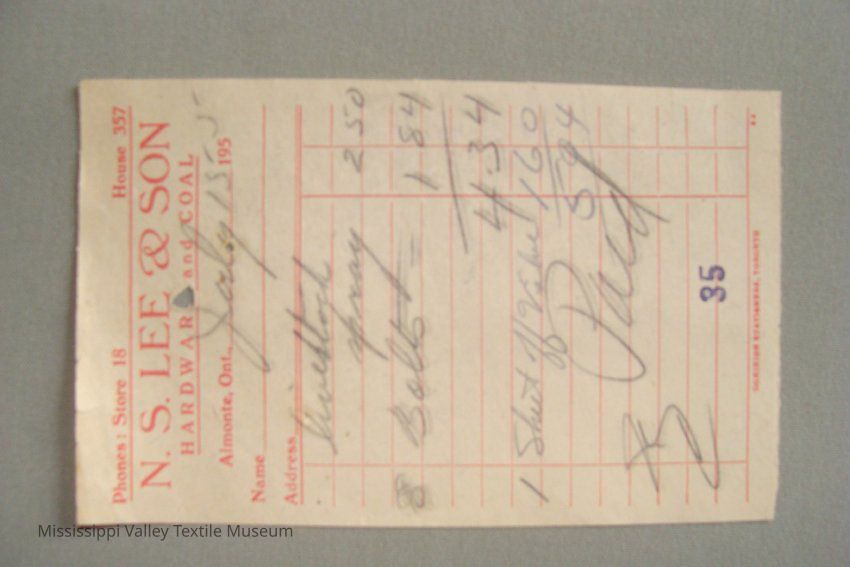 Phones: Store 18 House 357
N. S. LEE & SON
HARDWARE and COAL
Almonte, Ont., July 15 1955
Name
Address
Livestock
spray 2 50
8 Bolts 1 84
4.34
1 Sheet 1 60
5 94
Paid
35
DOMINION STATIONERS, TORONTO
Mississippi Valley Textile Museum